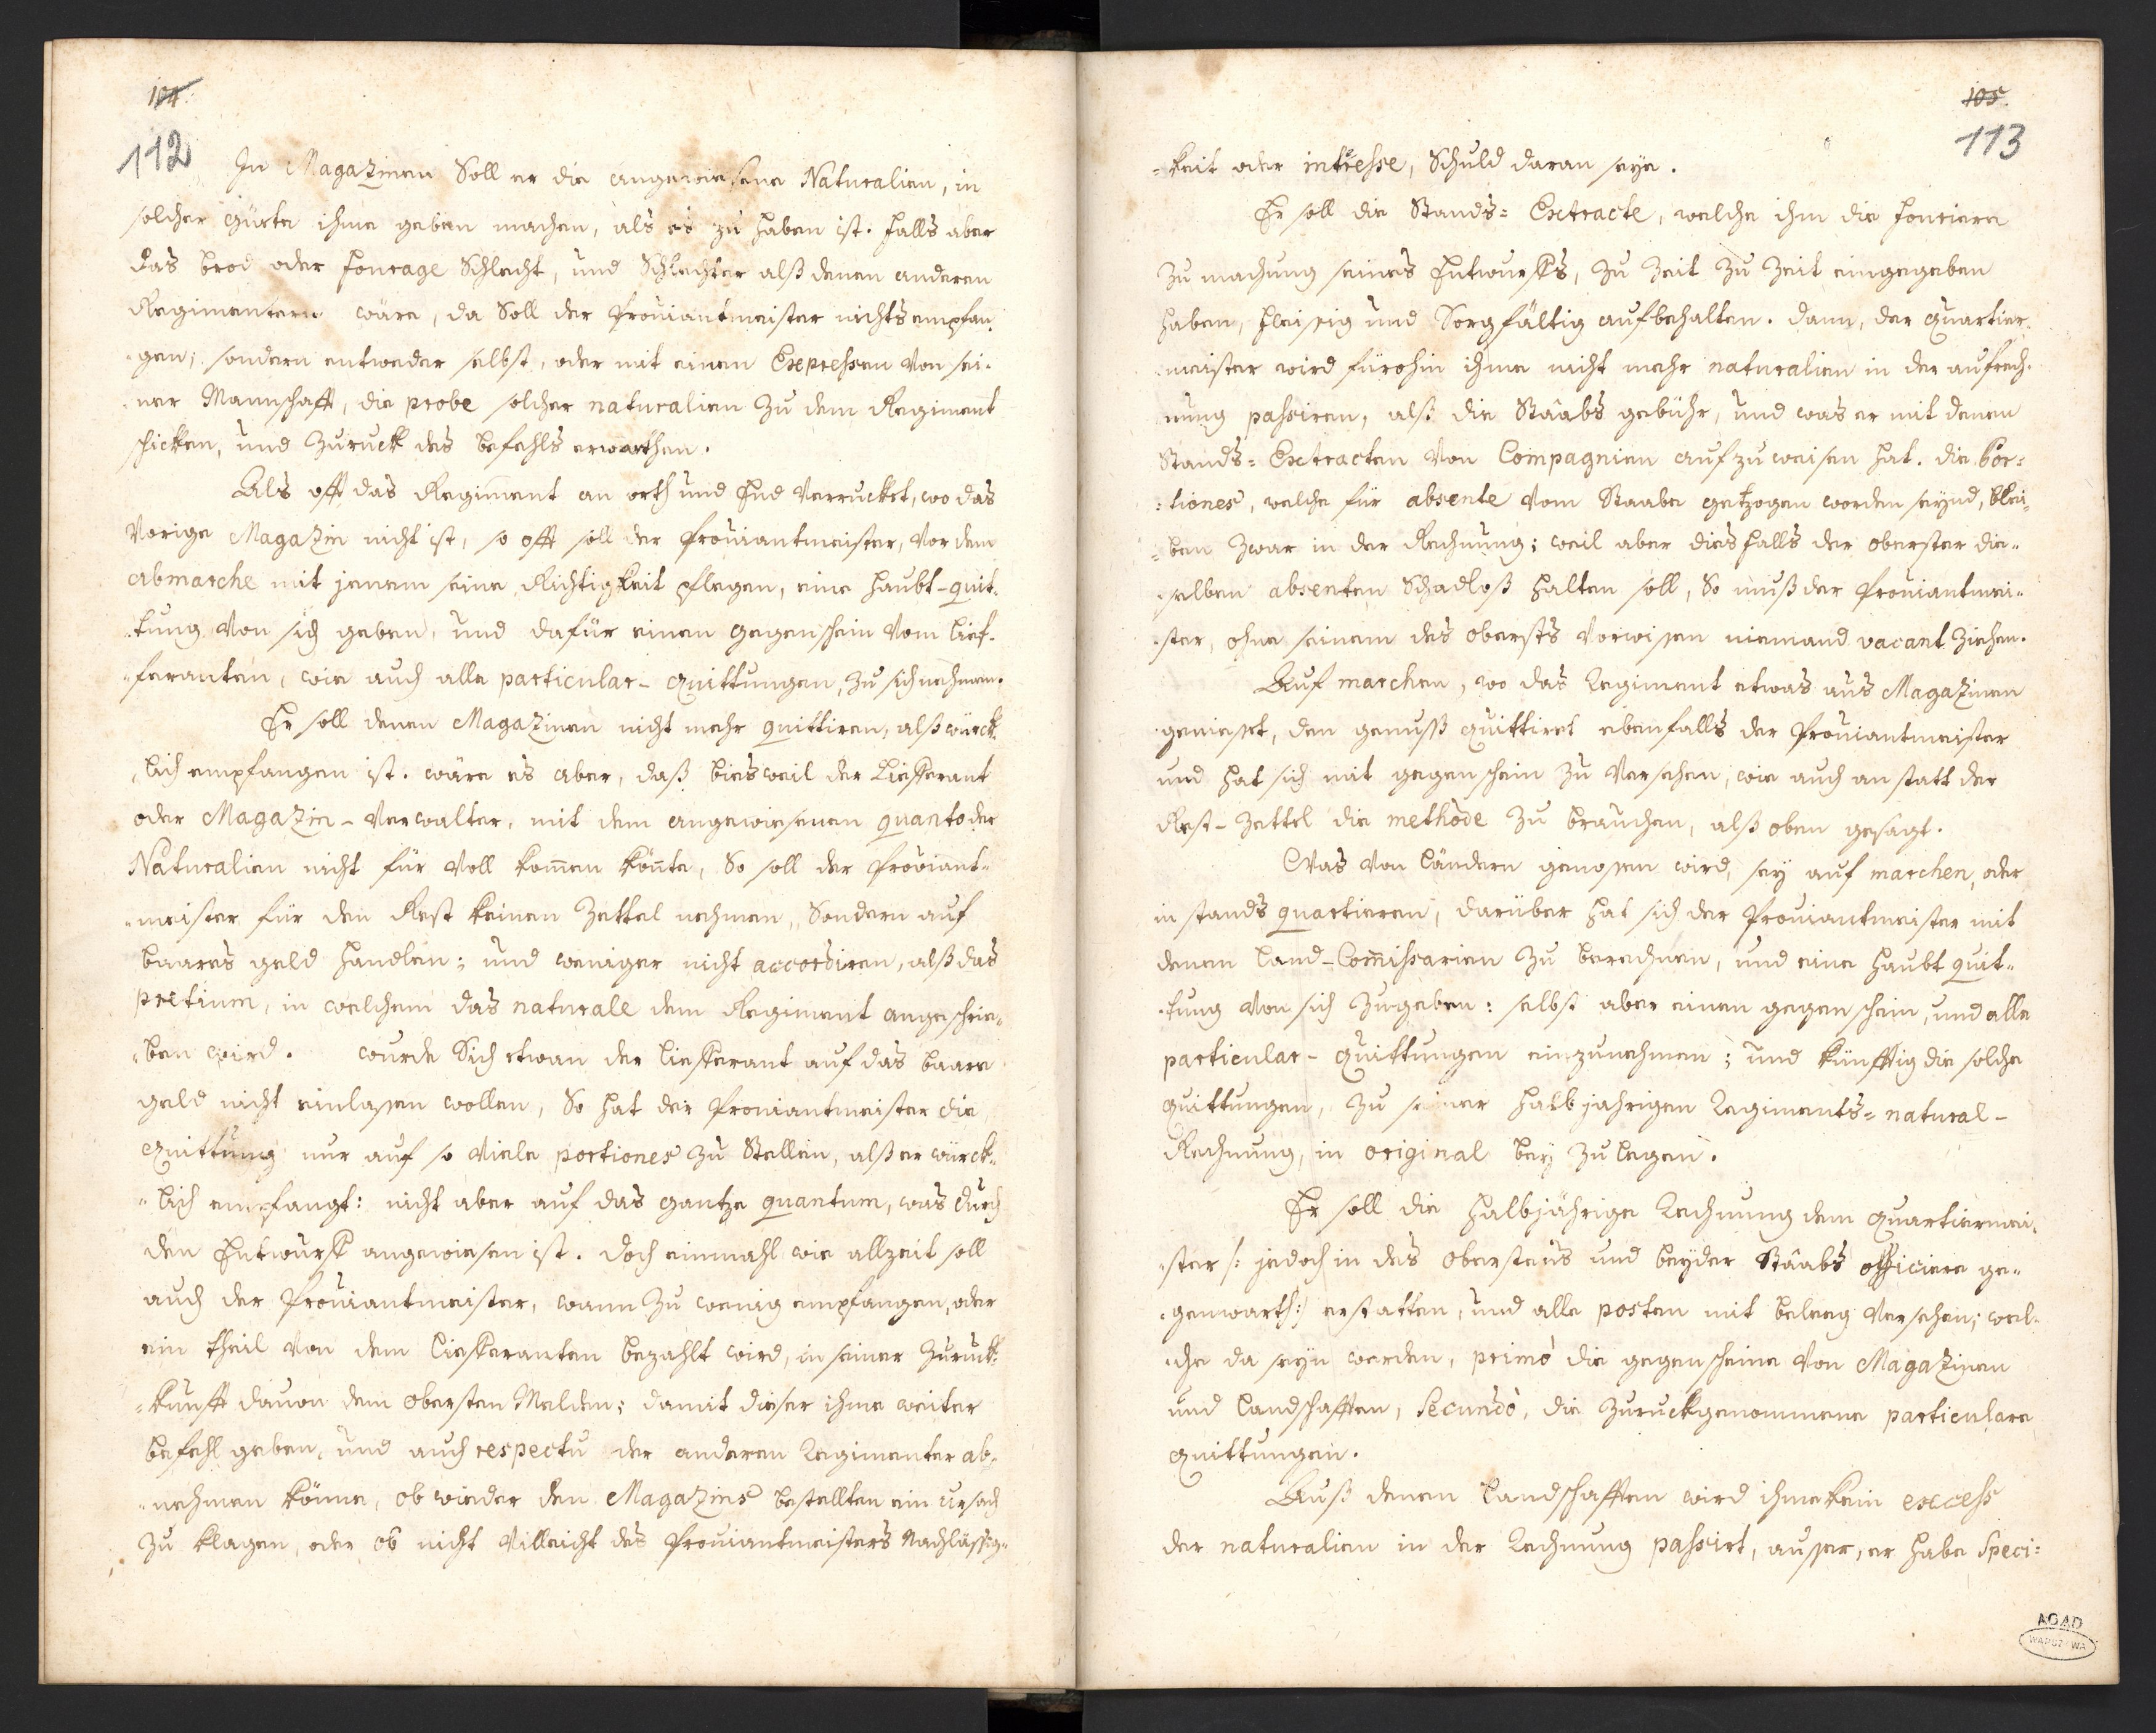 104.
112
In Magazinen Soll er die angewiesene Naturalien, in
solcher gürte ihme geben machen, als es zu haben ist. falls aber
das brod oder fourage Schlecht, und Schlechter alß denen anderen
Regimentern wäre, da Soll der Proviantmeister nichts empfan-
gen; sondern entweder selbst, oder mit einen Expressen von sei-
ner Mannschafft, die probe solcher naturalien zu dem Regiment
schicken, und zuruck des befehls erwarthen.
Als offt das Regiment an orth und End verrucket, wo das
vorige Magazin nicht ist, so offt soll der Proviantmeister, vor dem
abmarche mit jenem seine Richtigkeit pflegen, eine haubt-quit-
tung von sich geben, und dafür einen gegenschein vom lief-
feranten, wie auch alle particular-quittungen, zu sich nehmen.
Er soll denen Magazinen nicht mehr quittiren, alß würck-
lich empfangen ist. wäre es aber, daß bisweil der Liefferant
oder Magazin-Verwalter, mit dem angewiesenen quanto der
Naturalien nicht für voll kom̄en kön̄te, So soll der Proviant-
meister für den Rest keinen Zettel nehmen, Sondern auf
baares geld handlen; und weniger nicht accordiren, alß das
pretium, in welchem das naturale dem Regiment angeschrie-
ben wird. wurde Sich etwan der liefferant auf das baare
geld nicht einlassen wollen, So hat der Proviantmeister die
quittung nur auf so viele portiones zu Stellen, alß er würck-
lich empfangt: nicht aber auf das gantze quantum, was durch
den Entwurff angewiesen ist. doch einmahl wie allzeit soll
auch der Proviantmeister, wann zu wenig empfangen, oder
ein theil von dem liefferanten bezahlt wird, in seiner Zuruck-
kunfft davon dem obersten Melden; damit dieser ihme weiter
befehl geben, und auch respectu der anderen Regimenter ab-
nehmen könne, ob wieder den Magazins bestellten ein ursach
zu klagen, oder ob nicht villeicht des Proviantmeisters Nachlässig-
105.
113
keit oder intresse, Schuld daran seye.
Er soll die Stands-Extracte, welche ihm die fouriere
zu machung seines Entwurffs, zu Zeit zu Zeit eingegeben
haben, fleissig und Sorgfältig aufbehalten. dann, der quartier-
meister wird fürohin ihme nicht mehr naturalien in der aufrech-
nung passiren, alß die Staabs gebühr, und was er mit denen
Stands-Extracten von Compagnien aufzuweisen hat. die por-
tiones, welche für absente vom Staabe getzogen worden seynd, blei-
ben zwar in der Rechnung; weil aber diesfalls der oberster die-
selben absenten Schadloß halten soll, So muß der Proviantmei-
ster, ohne seinem des obersts vorwissen niemand vacant ziehen.
Auf marchen, wo das Regiment etwas aus Magazinen
geniesset, den genuß quittiret ebenfalls der Proviantmeister
und hat sich mit gegenschein zu versehen, wie auch anstatt der
Rest-Zettel die methode zu brauchen, alß oben gesagt.
Was von ländern genossen wird, sey auf marchen, oder
in stands quartieren, darüber hat sich der Proviantmeister mit
denen land-Com̄issarien zu berechnen, und eine haubt quit-
tung von sich zugeben: selbst aber einen gegenschein, und alle
particular-quittungen einzunehmen; und künfftig die solche
quittungen, zu seiner halbjahrigen Regiments-natural-
Rechnung, in original bey zu legen.
Er soll die halbjährige Rechnung dem quartiermei-
ster /: jedoch in des obersteus und beyder Staabs officiere ge-
genwarth:/ erstatten, und alle posten mit beleg versehen; wel-
che da seyn werden, primò die gegenscheine von Magazinen
und landschafften, Secundò, die zuruckgenommene particulare
quittungen.
Auß denen landschafften wird ihme kein excess
der naturalien in der Rechnung passirt, ausser, er habe Speci-
AGAD
WARSZAWA